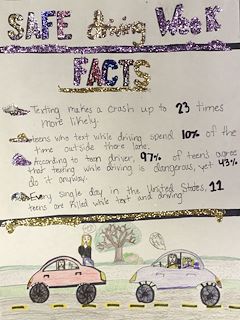 SAFE driving Week
FACTS
Texting makes a crash up to 23 times
more likely.
teens who text while driving spend 10% of the
time outside there lane.
According to teen driver, 97% of teens agree
that texting while driving is dangerous, yet 43%
do it anyway.
Every single day in the United States, 11
teens are killed while text and driving